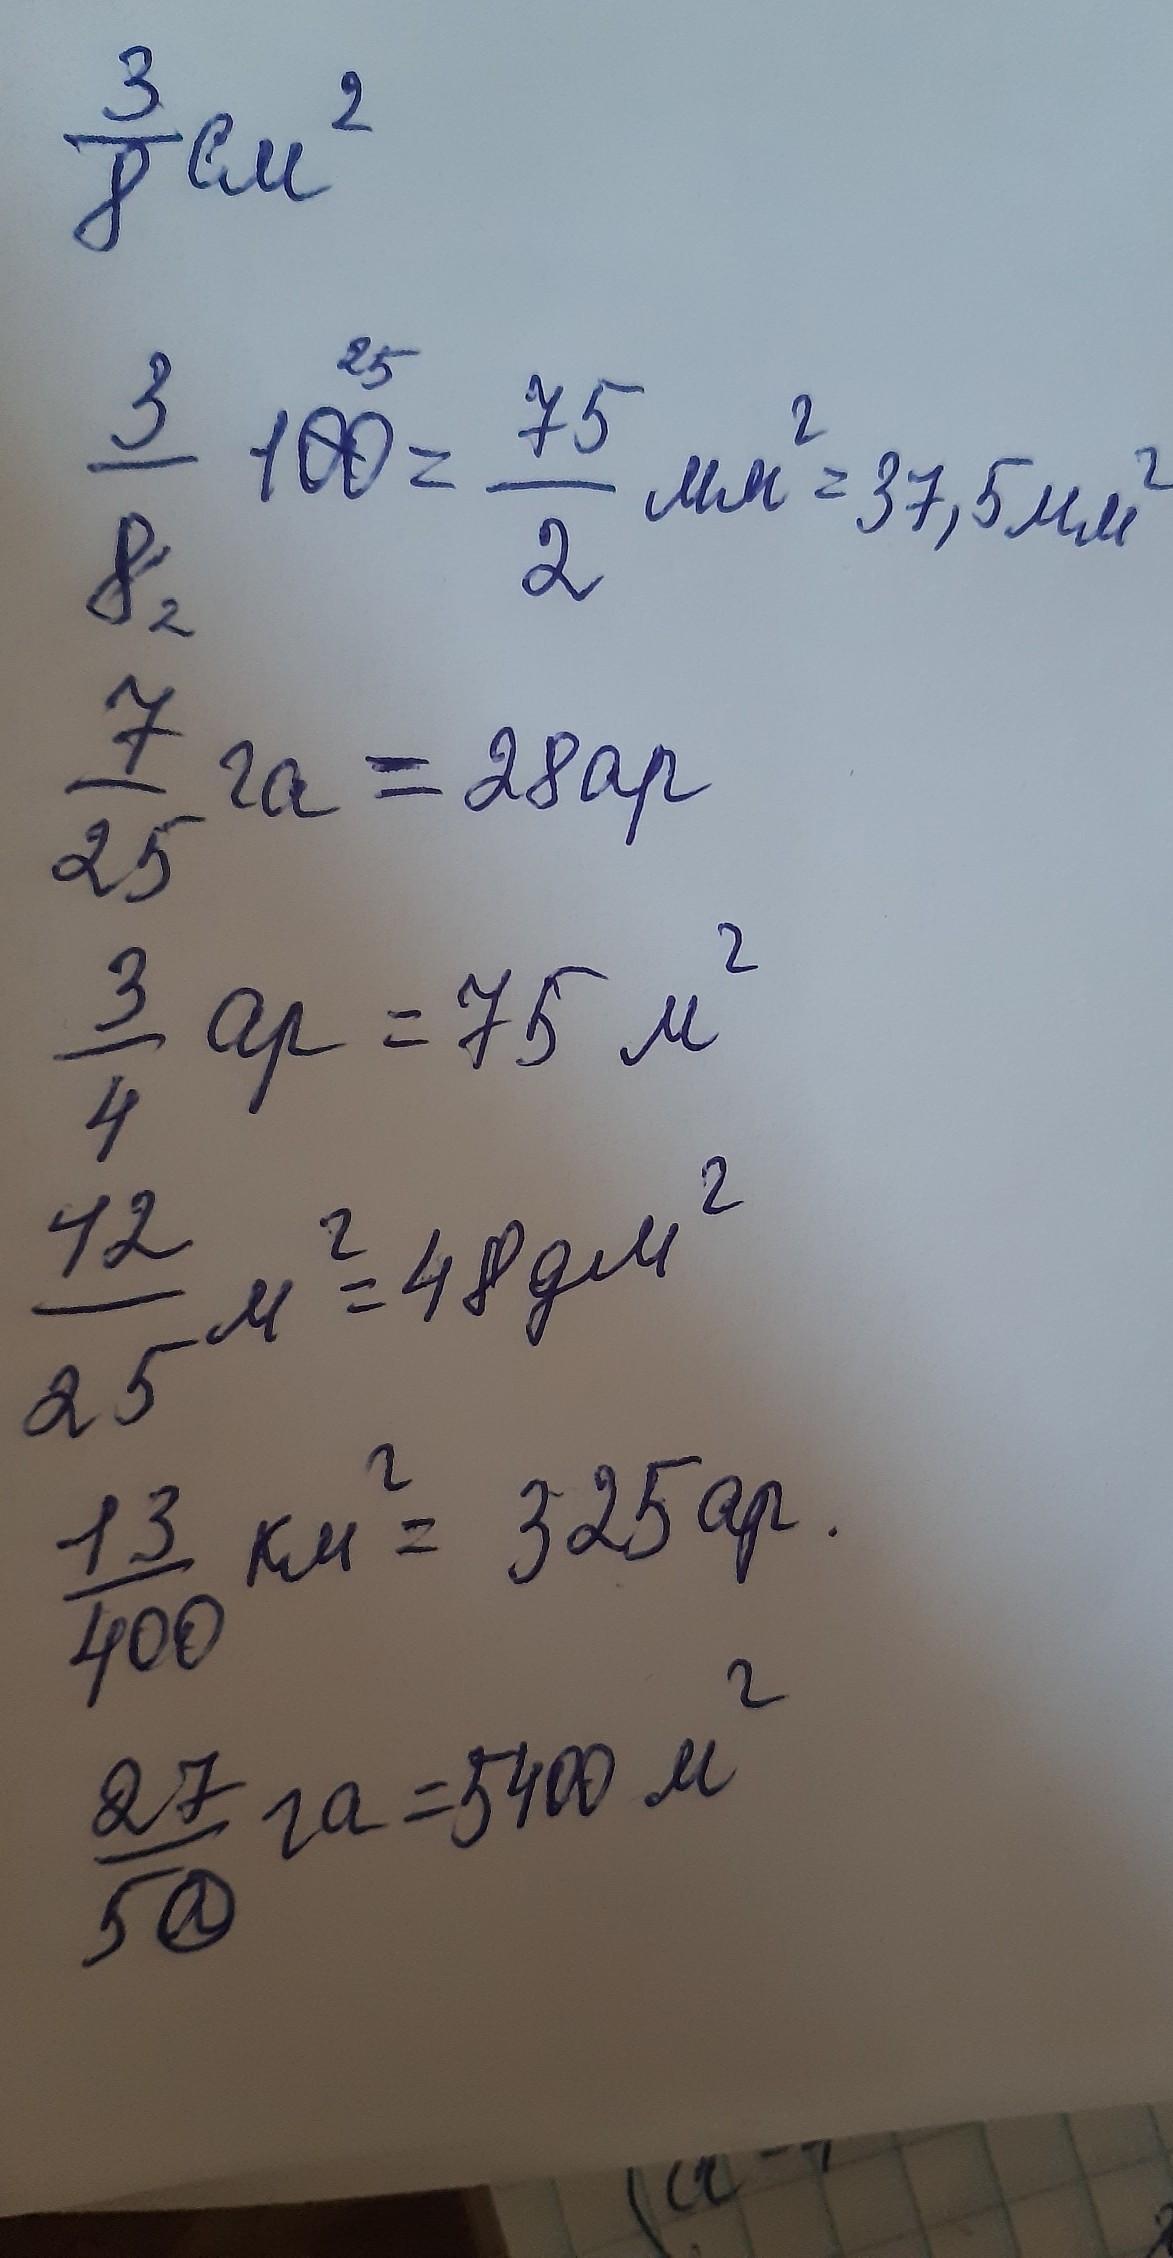 3/8 см²
3/8₂ 100²⁵ = 75/2 мм² = 37,5 мм²
7/25 га = 28 ар
3/4 ар = 75 м²
12/25 м² = 48 дм²
13/400 км² = 325 ар.
27/50 га = 5400 м²